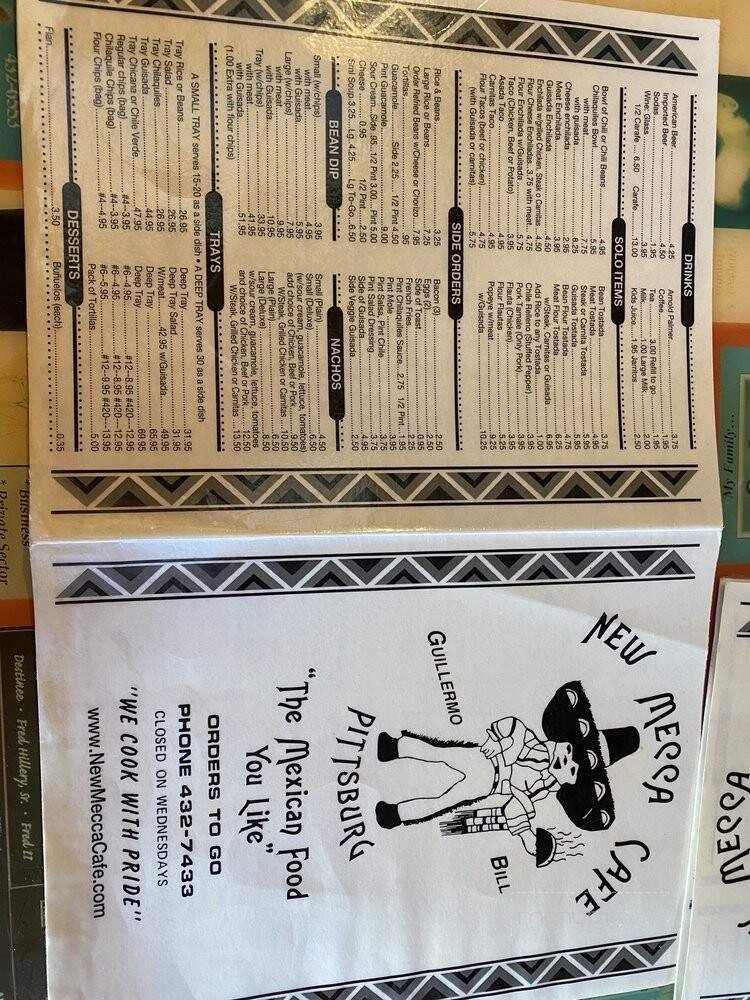 DRINKS
American Beer 4.25
Imported Beer 4.75
Sodas 1.95
Wine: Glass 3.95
1/2 Carafe 6.50 Carafe 13.00
Arnold Palmer 3.75
Coffee 1.95
Tea 3.00 Refill to go 1.95
Milk 1.00 Large Milk 2.00
Kids Juice 1.95 Jarritos 2.50
SOLO ITEMS
Bowl of Chili or Chili Beans 4.95
Chilaquiles Bowl 5.95
with meat 7.75
with guisada 8.25
Cheese enchilada 2.95
Meat Enchilada 3.95
Guisada Enchilada 4.50
Enchilada w/grilled Chicken, Steak o Carnitas 4.50
Four Cheese Enchiladas 3.75 with meat 4.75
Four Enchilada w/Guisada 5.75
Taco (Chicken, Beef or Potato) 3.95
Asada Taco 4.95
Carnitas Taco 4.95
Flour Tacos (beef or chicken) 4.75
(with Guisada or carnitas) 5.75
Bean Tostada 3.75
Meat Tostada 4.95
Steak or Carnita Tostada 5.95
Guisada Tostada 5.95
Bean Flour Tostada 4.75
Meat Flour Tostada 6.25
w/Steak, Carnitas or Guisada 6.95
Add Rice to any Tostada 1.00
Chile Relleno (Stuffed Pepper) 4.95
Pork Tamale (Only Pork) 3.95
Flauta (Chicken) 3.95
Four Flautas 5.25
Popeye w/meat 9.25
w/Guisada 10.25
SIDE ORDERS
Rice & Beans 3.25
Large Rice or Beans 7.25
Order Refried Beans w/Cheese or Chorizo 7.95
Tortillas .95
Guacamole Side 2.25 1/2 Pint 4.50
Pint Guacamole 9.00
Sour Cream Side .95 1/2 Pint 3.00 Pint 5.00
Cheese 0.95 1/2 Pint 2.50
Sml Soup 3.25 Lg 4.25 Lg To-Go 6.50
Bacon (3) 2.50
Eggs (2) 2.50
Side of Toast 0.95
French Fries 2.25
Pint Chilaquiles Sauce 2.75 1/2 Pint 1.95
Pint Mole 3.95
Pint Salsa, Pint Chile 3.75
Pint Salad Dressing 3.75
Side of Guisada 4.95
Side Veggie Guisada 2.50
BEAN DIP
Small (w/chips) 3.95
with meat 4.95
with Guisada 5.95
Large (w/chips) 7.95
with meat 9.95
with Guisada 10.95
Tray (w/chips) 33.95
with meat 41.95
with Guisada 51.95
(1.00 Extra with flour chips)
NACHOS
Small (Plain) 4.50
Small (Deluxe) 6.50
(w/sour cream, guacamole, lettuce, tomatoes)
add choice of Chicken, Beef or Pork 8.50
W/Steak, Grilled Chicken or Carnitas 10.50
Large (Plain) 6.50
Large (Deluxe) 8.50
w/sour cream, guacamole, lettuce, tomatoes
and choice of Chicken, Beef or Pork 12.50
W/Steak, Grilled Chicken or Carnitas 13.50
TRAYS
A SMALL TRAY serves 15-20 as a side dish • A DEEP TRAY serves 30 as a side dish
Tray Rice or Beans 26.95
Tray Salad 26.95
Tray Chilaquiles 26.95
Tray Guisada 44.95
Tray Chicana or Chile Verde 47.95
Regular chips (bag) #4--3.95
Chilaquile Chips (bag) #4--3.95
Flour Chips (bag) #4--4.95
Deep Tray 31.95
Deep Tray Salad 31.95
W/meat 42.95 w/Guisada 49.95
Deep Tray 65.95
Deep Tray 69.95
#6--4.95 #12--8.95 #420--12.95
#6--4.95 #12--8.95 #420--12.95
#6--5.95 #12--9.95 #420--13.95
Pack of Tortillas 5.00
DESSERTS
Flan 3.50
Buñuelos (each) 0.35
NEW MECCA CAFE
GUILLERMO
BILL
PITTSBURG
"The Mexican Food
You Like"
ORDERS TO GO
PHONE 432-7433
CLOSED ON WEDNESDAYS
"WE COOK WITH PRIDE"
www.NewMeccaCafe.com
MECCA
My Family...
* Business
* Private Sector
Destinee • Fred Hillery, Sr. • Fred II